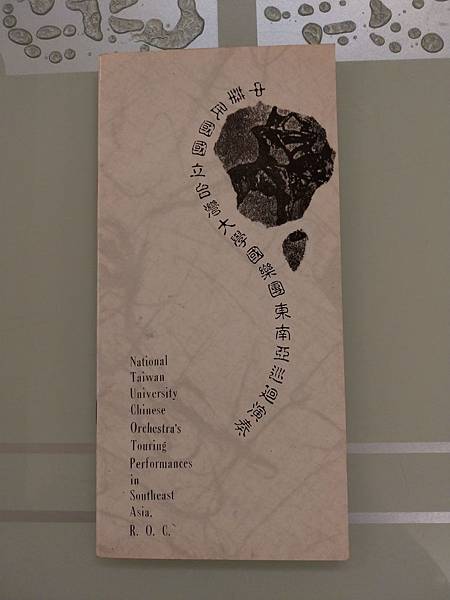 中華民國國立台灣大學國樂團東南亞巡迴演奏
National
Taiwan
University
Chinese
Orchestra's
Touring
Performances
in
Southeast
Asia.
R. O. C.